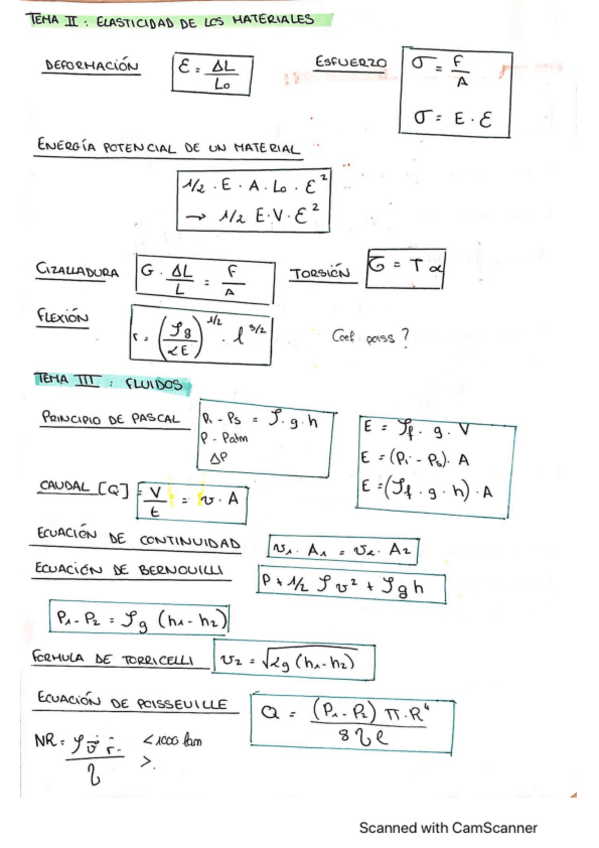 TEMA II : ELASTICIDAD DE LOS MATERIALES
DEFORMACIÓN ε = ΔL / L₀
ESFUERZO σ = F / A
σ = E · ε
ENERGÍA POTENCIAL DE UN MATERIAL
1/2 · E · A · L₀ · ε²
→ 1/2 E · V · ε²
CIZALLADURA G · ΔL / L = F / A
TORSIÓN G = T α
FLEXIÓN r = (ρg / 2E)^1/2 · l^3/2
Coef. poiss ?
TEMA III : FLUIDOS
PRINCIPIO DE PASCAL Pi - Ps = ρ · g · h
P - Patm
ΔP
E = ρf · g · V
E = (Pi - Ps) · A
E = (ρf · g · h) · A
CAUDAL [Q] = V / t = v · A
ECUACIÓN DE CONTINUIDAD v₁ · A₁ = v₂ · A₂
ECUACIÓN DE BERNOUILLI P + 1/2 ρ v² + ρ g h
P₁ - P₂ = ρg (h₁ - h₂)
FORMULA DE TORRICELLI v₂ = √2g (h₁ - h₂)
ECUACIÓN DE POISSEUILLE Q = (P₁ - P₂) π · R⁴ / 8 η l
NR = ρ · v̄ · r · / η < 1000 lam
>.
Scanned with CamScanner